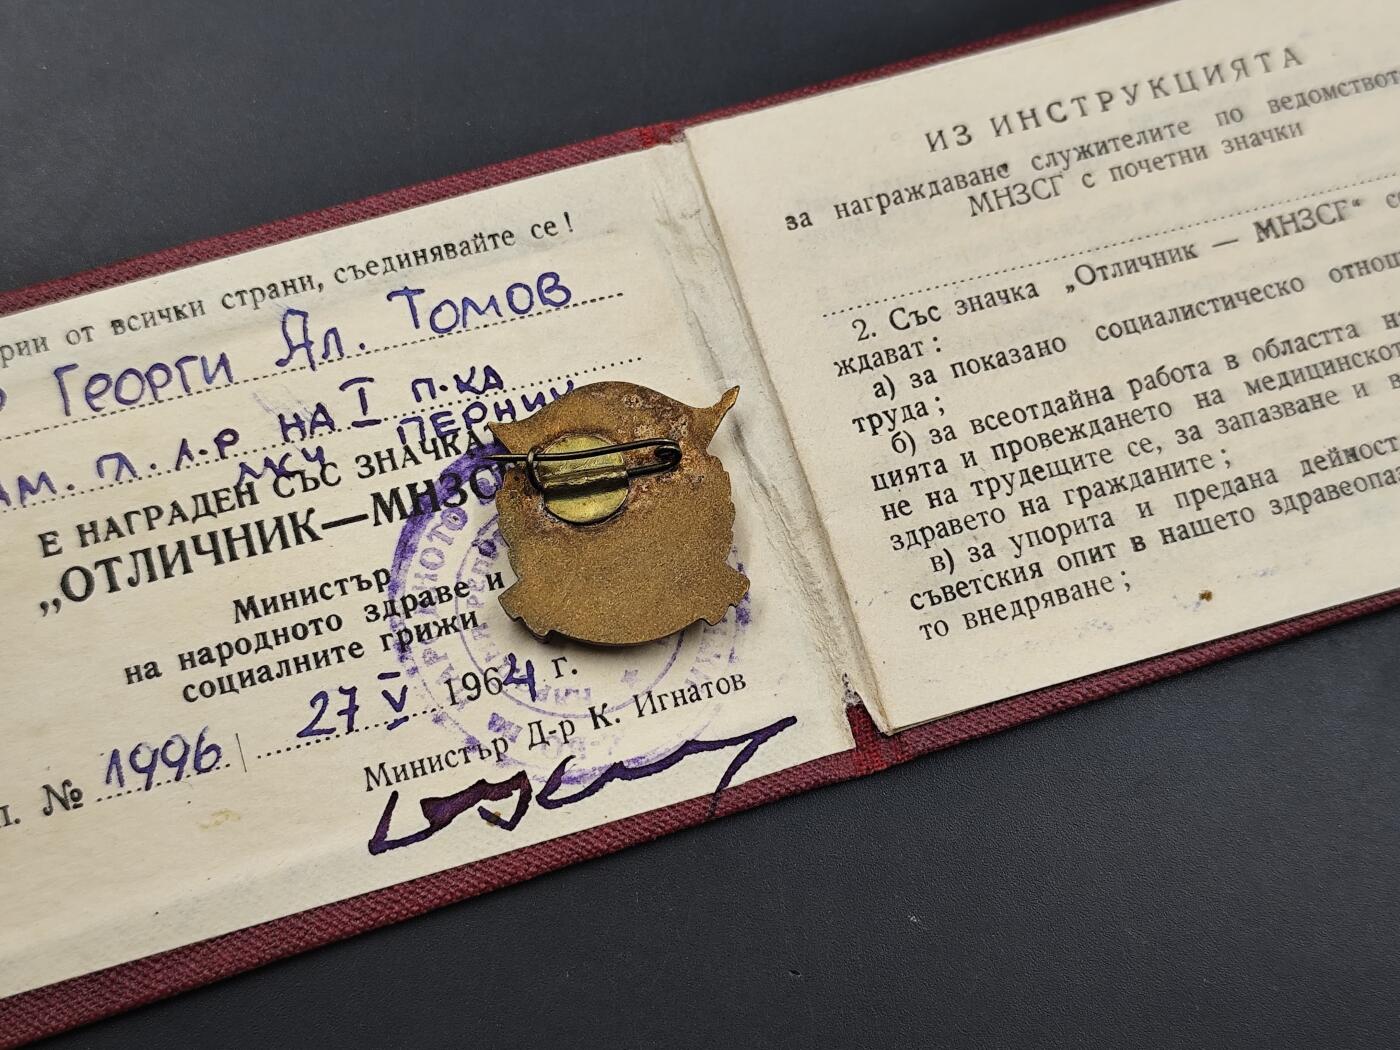 рии от всички страни, съединявайте се!
Георги Ал. Томов
ам. гл. л-р на I п-ка
МСЧ Перник
Е НАГРАДЕН СЪС ЗНАЧКА
„ОТЛИЧНИК—МНЗС
Министър
на народното здраве и
социалните грижи
27 V 1964 г.
№ 1996
Министър Д-р К. Игнатов
ИЗ ИНСТРУКЦИЯТА
за награждаване служителите по ведомствот
МНЗСГ с почетни значки
2. Със значка „Отличник — МНЗСГ“ с
ждават:
а) за показано социалистическо отнош
труда;
б) за всеотдайна работа в областта н
цията и провеждането на медицинскот
не на трудещите се, за запазване и в
здравето на гражданите;
в) за упорита и предана дейност
съветския опит в нашето здравеопа
то внедряване;